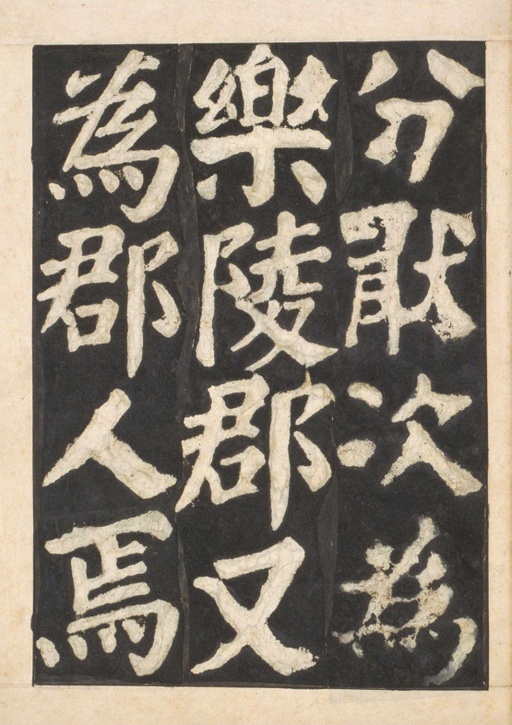 分猒次為
樂陵郡又
為郡人焉